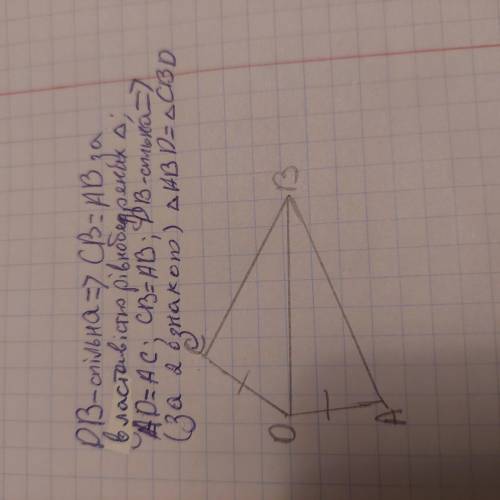 DB-спільна=> CB=AB за
властивістю рівнобедрених Δ;
AD=AC; CB=AB; DB-спільна=>
(за 2 ознакою) ΔABD=ΔCBD
C
B
D
A